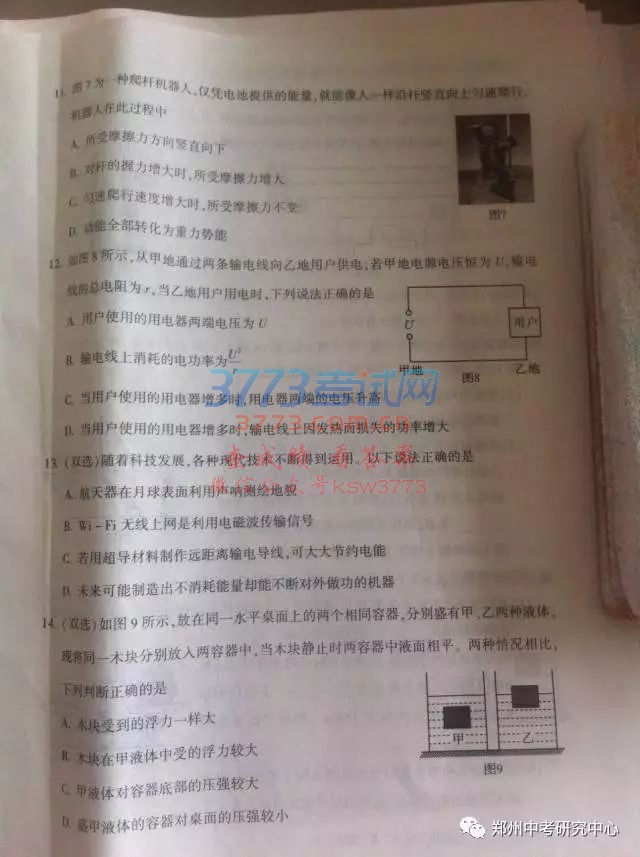 11. 图7为一种爬杆机器人,仅凭电池提供的能量,就能像人一样沿杆竖直向上匀速爬行。
机器人在此过程中
A. 所受摩擦力方向竖直向下
B. 对杆的握力增大时,所受摩擦力增大
C. 匀速爬行速度增大时,所受摩擦力不变
D. 动能全部转化为重力势能
图7
12. 如图8所示,从甲地通过两条输电线向乙地用户供电,若甲地电源电压恒为U,输电
线的总电阻为r,当乙地用户用电时,下列说法正确的是
A. 用户使用的用电器两端电压为U
B. 输电线上消耗的电功率为U²/r
C. 当用户使用的用电器增多时,用电器两端的电压升高
D. 当用户使用的用电器增多时,输电线上因发热而损失的功率增大
U
用户
甲地
乙地
图8
3773考试网
3773.com.cn
微信公众号ksw3773
13. (双选)随着科技发展,各种现代技术不断得到运用。以下说法正确的是
A. 航天器在月球表面利用声呐测绘地貌
B. Wi-Fi无线上网是利用电磁波传输信号
C. 若用超导材料制作远距离输电导线,可大大节约电能
D. 未来可能制造出不消耗能量却能不断对外做功的机器
14. (双选)如图9所示,放在同一水平桌面上的两个相同容器,分别盛有甲、乙两种液体,
现将同一木块分别放入两容器中,当木块静止时两容器中液面相平。两种情况相比,
下列判断正确的是
A. 木块受到的浮力一样大
B. 木块在甲液体中受的浮力较大
C. 甲液体对容器底部的压强较大
D. 盛甲液体的容器对桌面的压强较小
甲
乙
图9
郑州中考研究中心